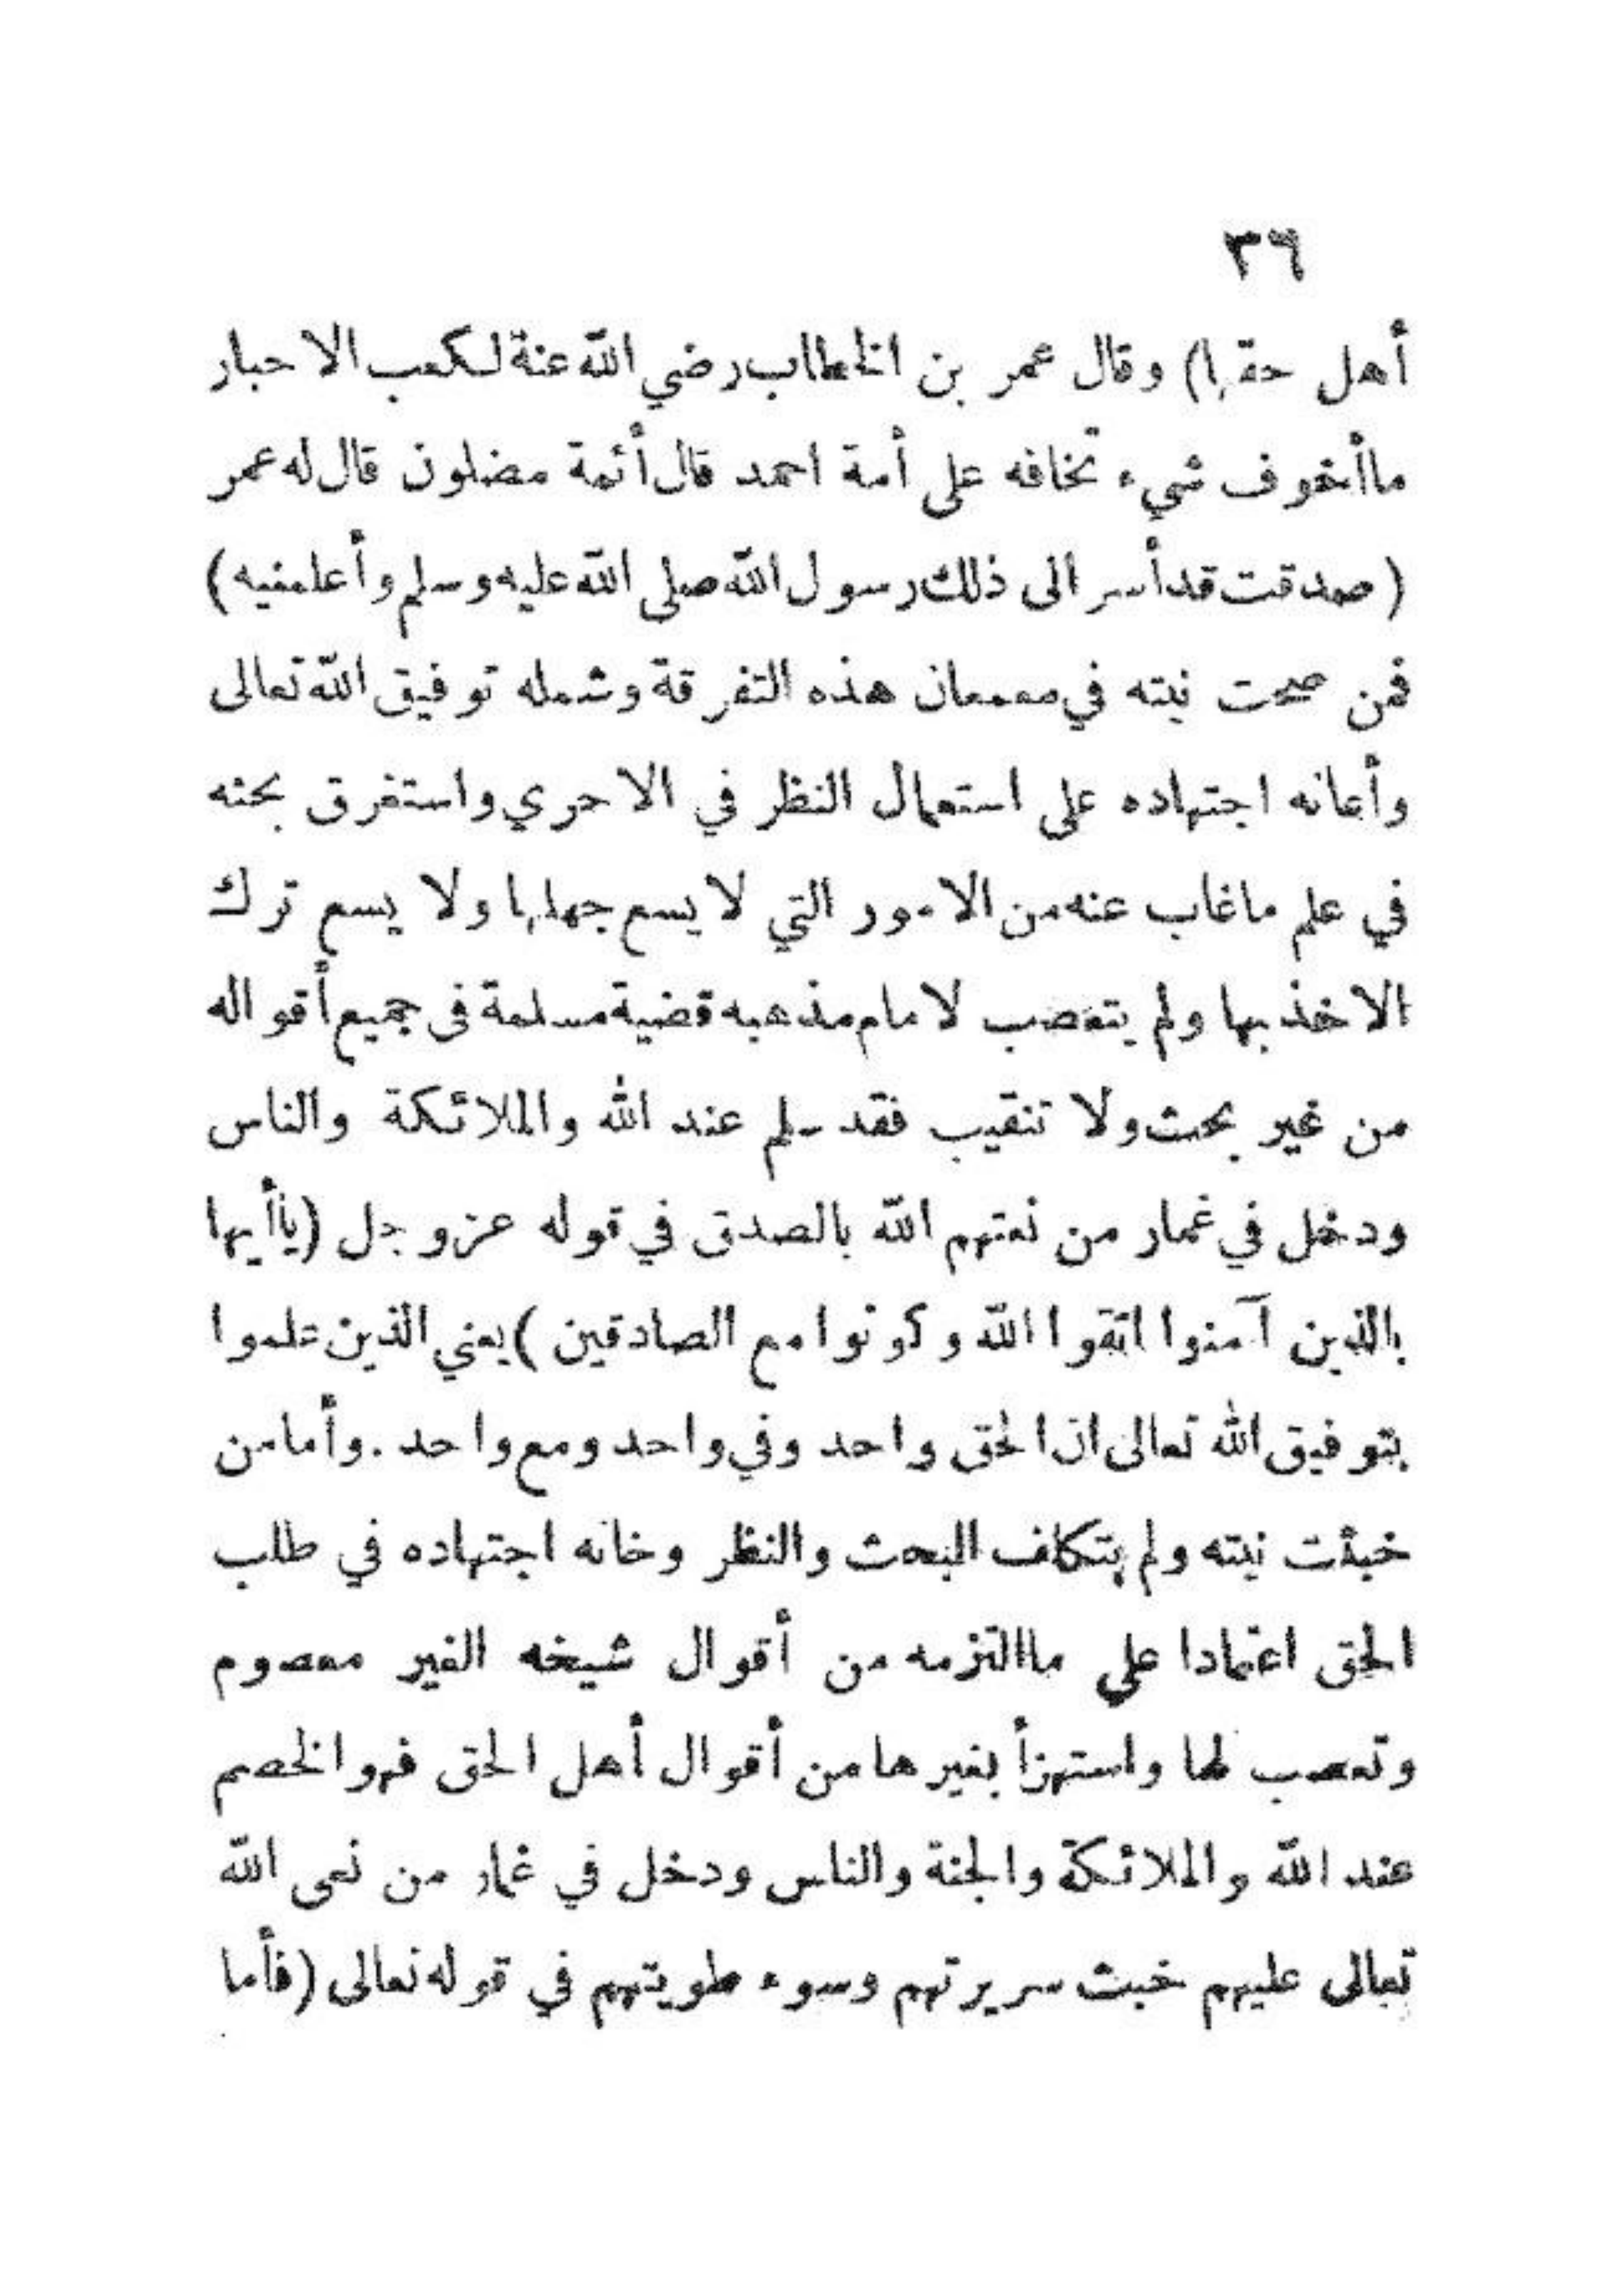 ٣٦
أهل حقها) وقال عمر بن الخطاب رضي الله عنة لكعب الاحبار
ماأخوف شيء تخافه على أمة احمد قال أئمة مضلون قال له عمر
(صدقت قد أسر الى ذلك رسول الله صلى الله عليه وسلم وأعلمنيه)
فمن صحت نيته في معمعان هذه التفرقة وشمله توفيق الله تعالى
وأعانه اجتهاده على استعمال النظر في الاحري واستغرق بحثه
في علم ماغاب عنه من الامور التي لا يسع جهلها ولا يسع ترك
الاخذ بها ولم يتعصب لامام مذهبه قضية مسلمة فى جميع أقواله
من غير بحث ولا تنقيب فقد سلم عند الله والملائكة والناس
ودخل في غمار من نعتهم الله بالصدق في قوله عز وجل (ياأيها
بالذين آمنوا اتقوا الله وكونوا مع الصادقين) يعني الذين علموا
بتوفيق الله تعالى ان الحق واحد وفي واحد ومع واحد . وأما من
خبثت نيته ولم يتكلف البحث والنظر وخانه اجتهاده في طلب
الحق اعتمادا على ماالتزمه من أقوال شيخه الغير معصوم
وتعصب لها واستهزأ بغيرها من أقوال أهل الحق فهو الخصم
عند الله والملائكة والجنة والناس ودخل في غمار من نعى الله
تعالى عليهم خبث سريرتهم وسوء طويتهم في قوله تعالى (فأما